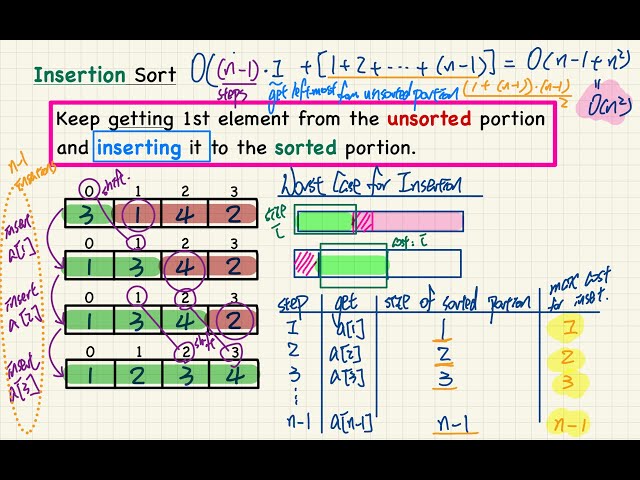 Insertion Sort O((n-1)·1 + [1+2+...+(n-1)] = O(n-1+n²)
steps get leftmost from unsorted portion (1+(n-1))·(n-1)/2 = O(n²)
Keep getting 1st element from the unsorted portion
and inserting it to the sorted portion.
n-1
insertions
0 1 2 3
shift
3 1 4 2
insert
a[1]
0 1 2 3
1 3 4 2
insert
a[2]
0 1 2 3
1 3 4 2
shift
insert
a[3]
0 1 2 3
1 2 3 4
Worst Case for Insertion
size
i
cost: i
step get size of sorted portion max cost
for insert.
1 a[1] 1 1
2 a[2] 2 2
3 a[3] 3 3
⋮
n-1 a[n-1] n-1 n-1